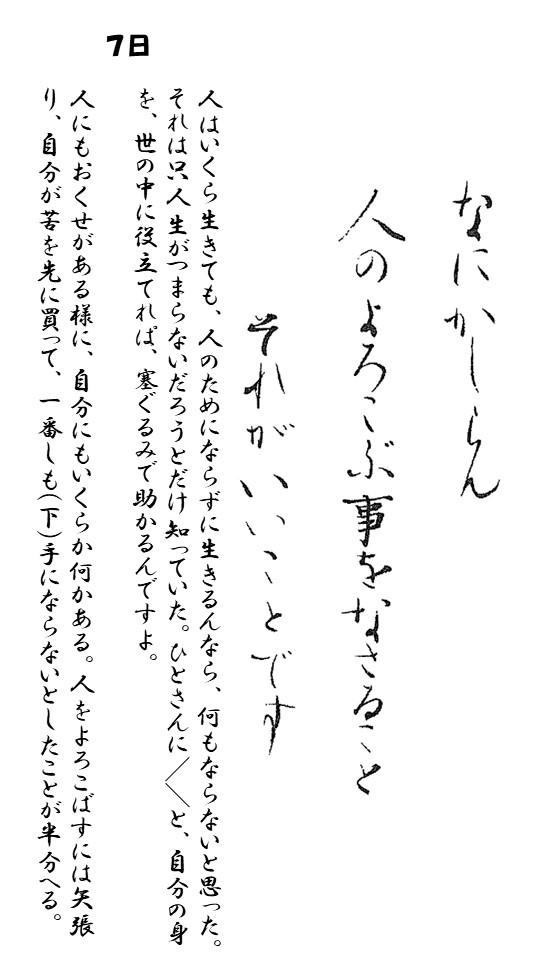 7日
なにかしらん
人のよろこぶ事をなさること
それがいいことです
人はいくら生きても、人のためにならずに生きるんなら、何もならないと思った。
それは只人生がつまらないだろうとだけ知っていた。ひとさんに／＼と、自分の身
を、世の中に役立てれば、塞ぐるみで助かるんですよ。
人にもおくせがある様に、自分にもいくらか何かある。人をよろこばすには矢張
り、自分が苦を先に買って、一番しも(下)手にならないとしたことが半分へる。